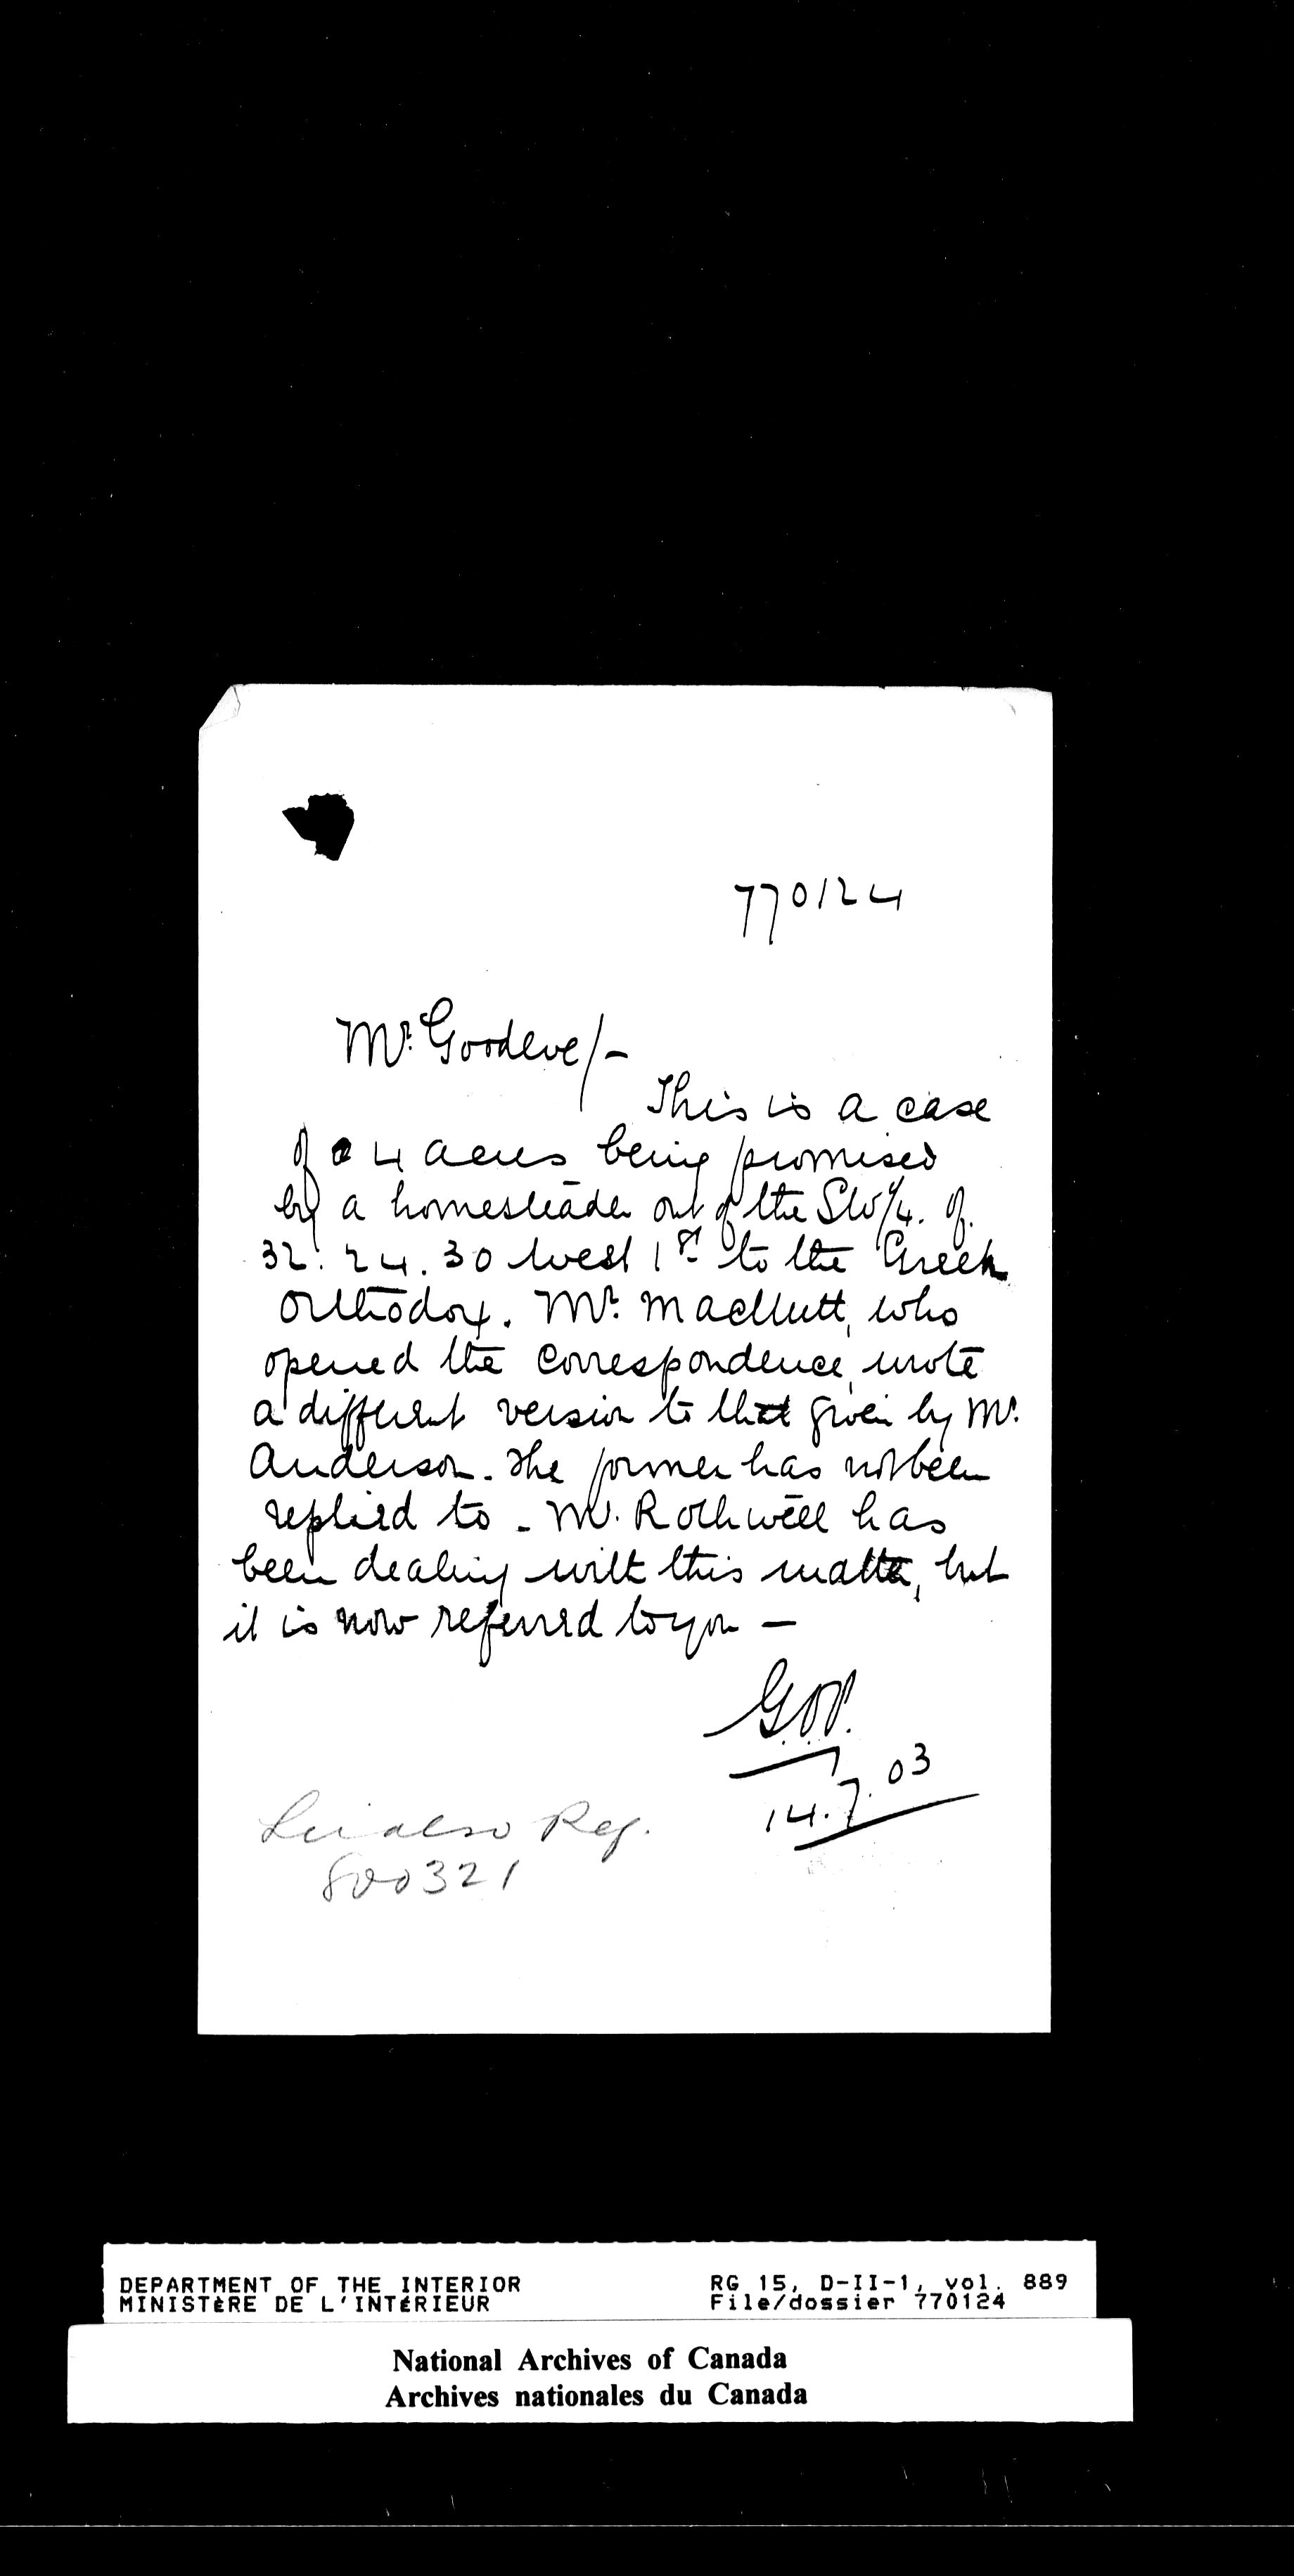 770124
Mr. Goodeve/-
This is a case
of 4 acres being promised
by a homesteader out of the SW/4. of.
32. 24. 30 West 1st to the Greek
Orthodox. Mr. MacNutt, who
opened the correspondence, wrote
a different version to that given by Mr.
Anderson. The former has not been
replied to - Mr. Rothwell has
been dealing with this matter, but
it is now referred to you —
14.7.03
also Ref.
800321
DEPARTMENT OF THE INTERIOR RG 15, D-II-1, vol. 889
MINISTÈRE DE L'INTÉRIEUR File/dossier 770124
National Archives of Canada
Archives nationales du Canada